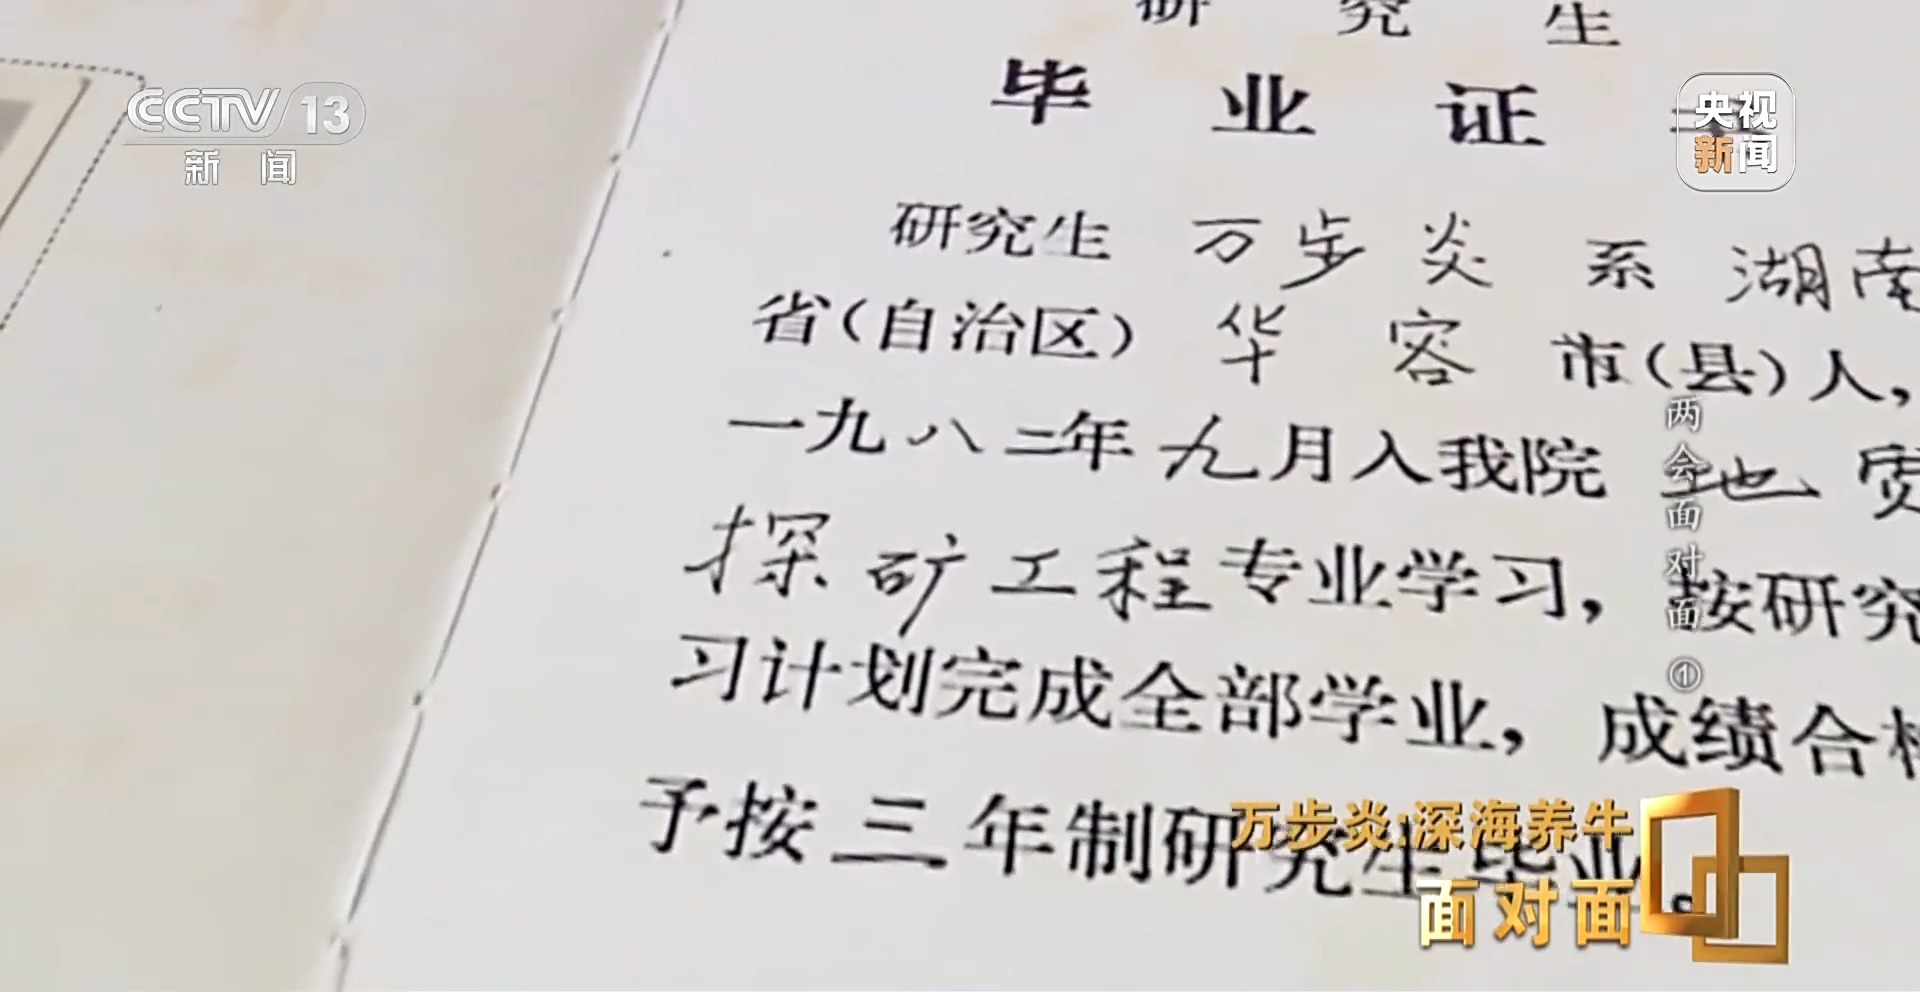 CCTV 13
新闻
央视
新闻
研究生
毕业证
研究生 万步炎 系 湖南
省(自治区) 华容 市(县)人,
一九八二年九月入我院 地质
探矿工程专业学习, 按研究
习计划完成全部学业, 成绩合格
予按三年制研究生毕业。
两会面对面①
万步炎:深海养牛
面对面